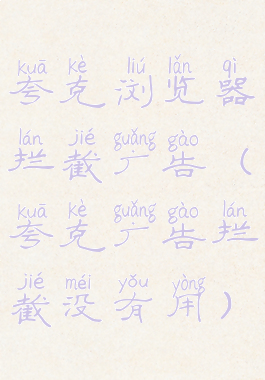 kuā kè liú lǎn qì
夸克浏览器
lán jié guǎng gào
拦截广告（
kuā kè guǎng gào lán
夸克广告拦
jié méi yǒu yòng
截没有用）